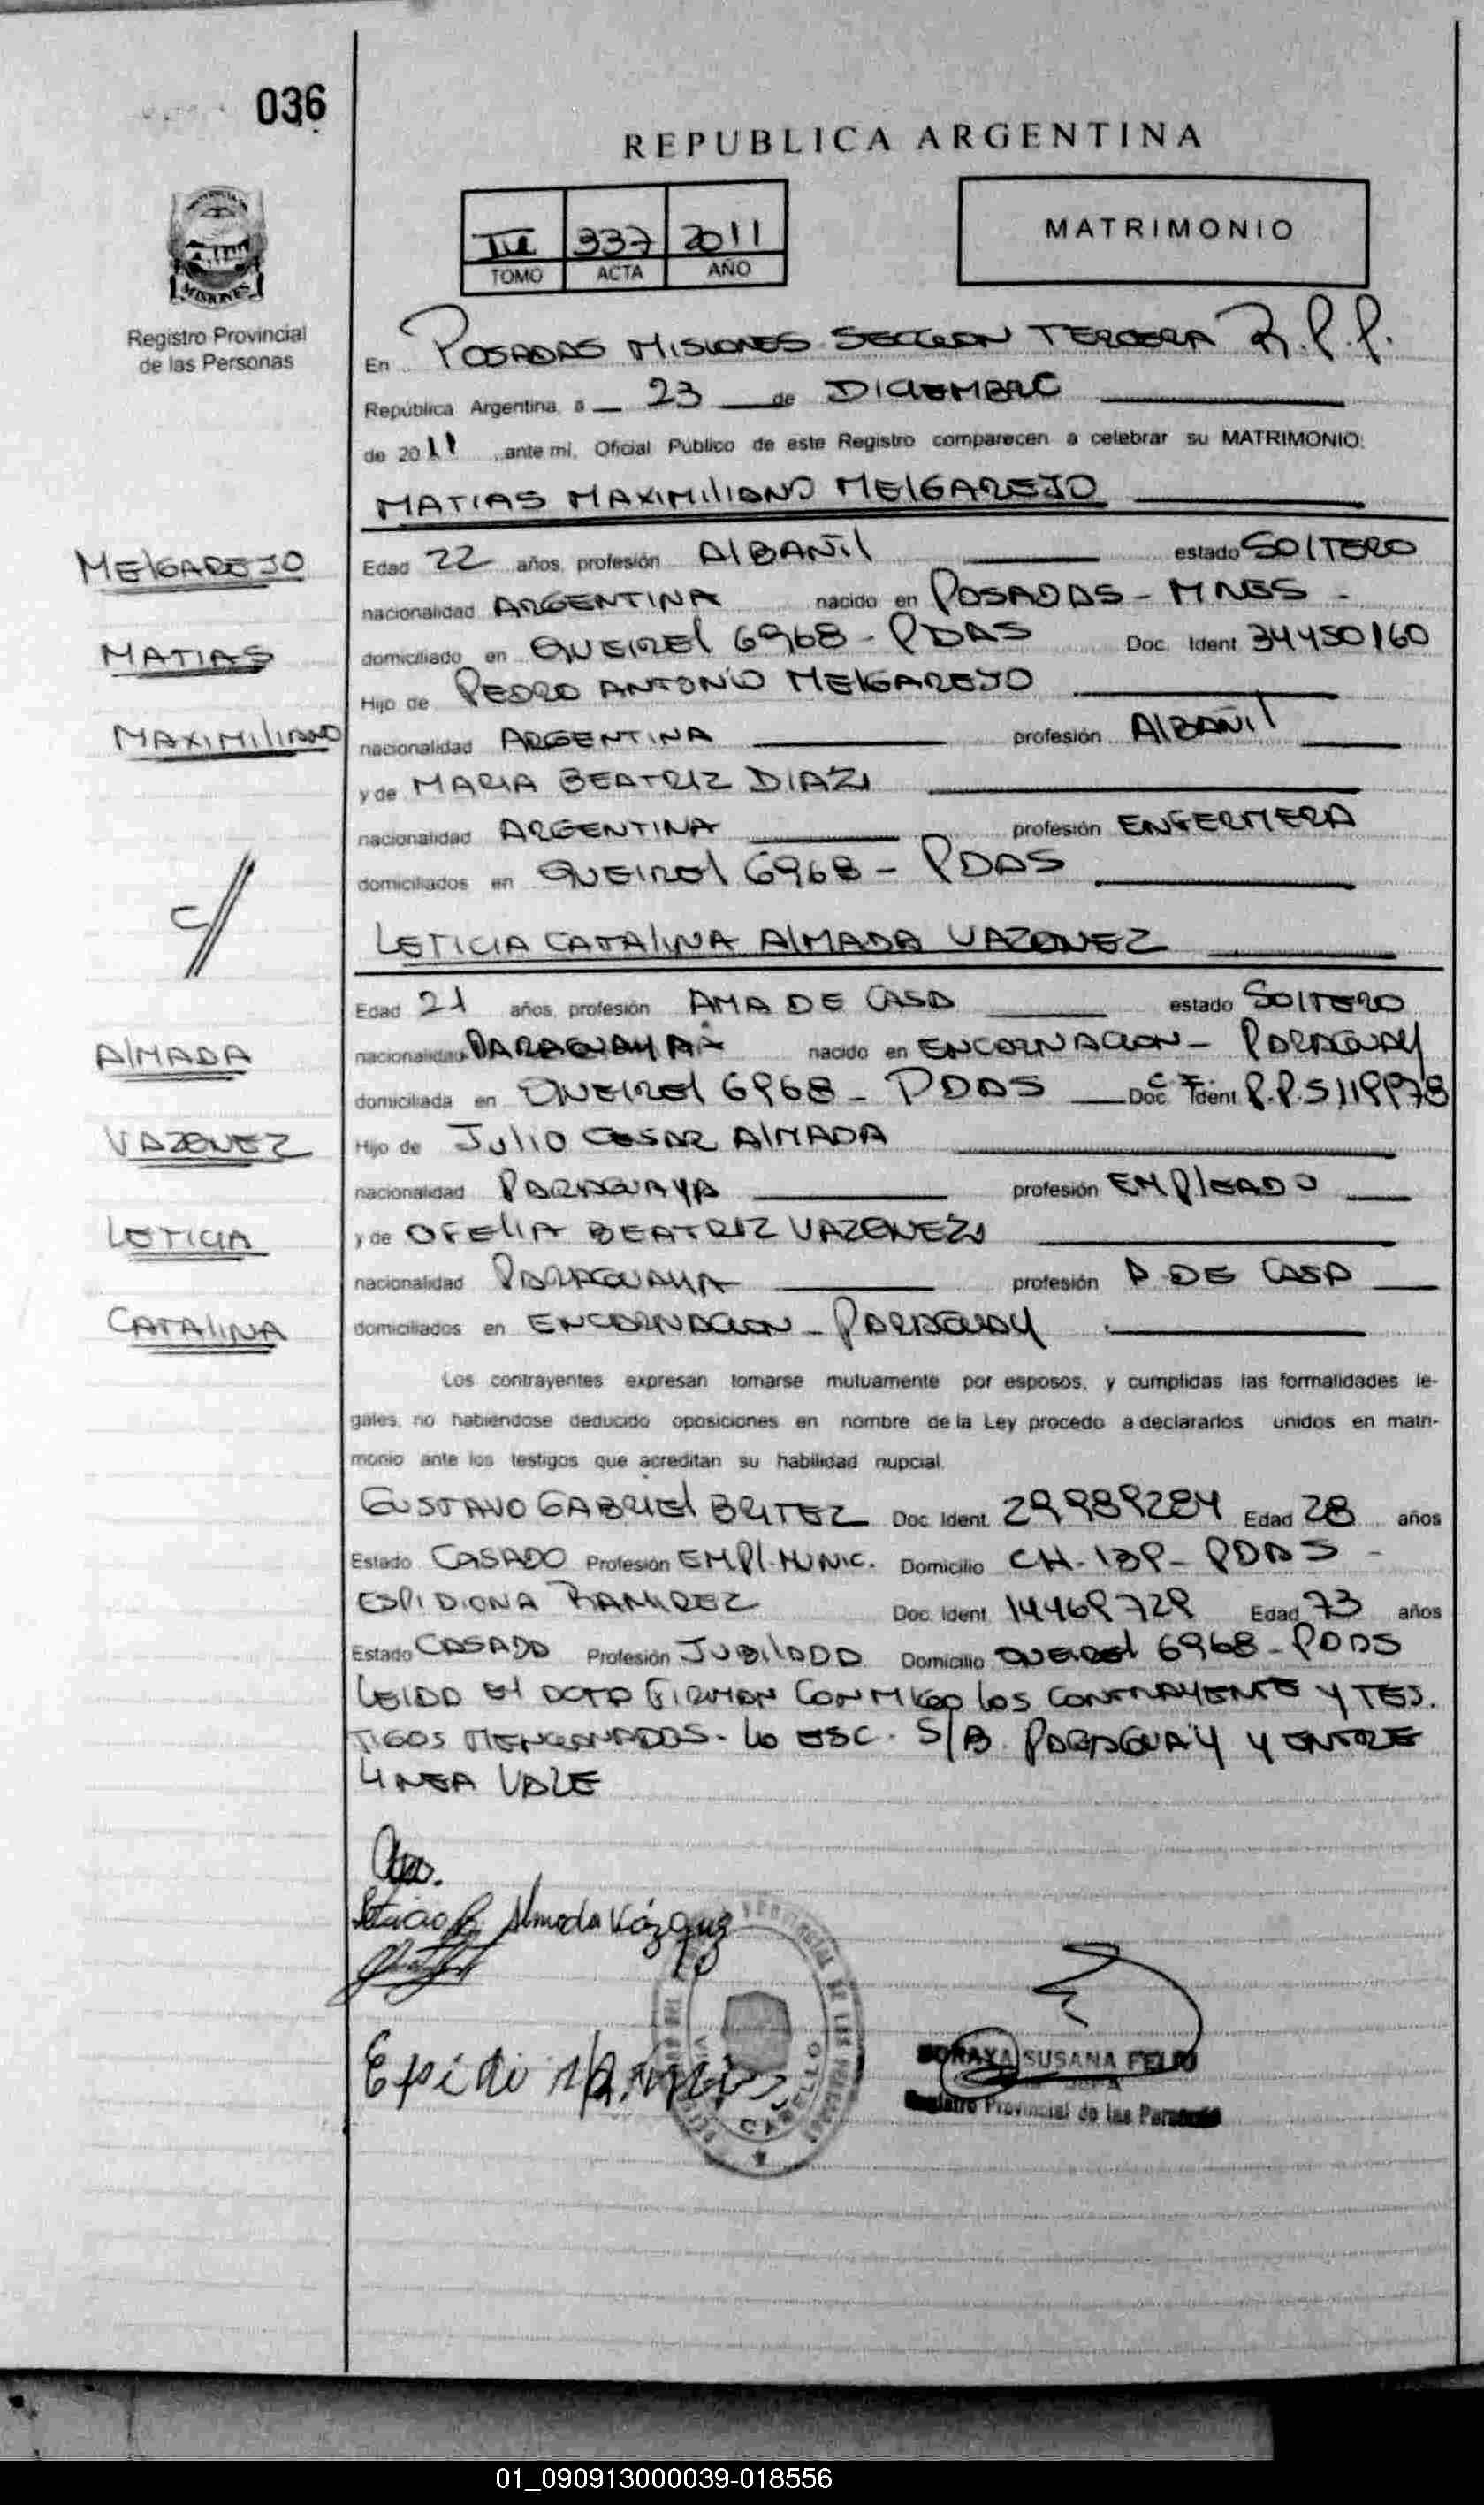 036
REPUBLICA ARGENTINA
III 337 2011
TOMO ACTA AÑO
MATRIMONIO
MISIONES
Registro Provincial
de las Personas
En POSADAS MISIONES SECCION TERCERA R.P.P.
República Argentina, a 23 de DICIEMBRE
de 2011 ante mi, Oficial Público de este Registro comparecen a celebrar su MATRIMONIO:
MATIAS MAXIMILIANO MELGAREJO
MELGAREJO
MATIAS
MAXIMILIANO
Edad 22 años, profesión ALBAÑIL estado SOLTERO
nacionalidad ARGENTINA nacido en POSADAS - MNES -
domiciliado en QUEIREL 6968 - PDAS Doc. Ident 34450160
Hijo de PEDRO ANTONIO MELGAREJO
nacionalidad ARGENTINA profesión ALBAÑIL
y de MARIA BEATRIZ DIAZ
nacionalidad ARGENTINA profesión ENFERMERA
domiciliados en QUEIREL 6968 - PDAS
c/
LETICIA CATALINA ALMADA VAZQUEZ
ALMADA
VAZQUEZ
LETICIA
CATALINA
Edad 21 años, profesión AMA DE CASA estado SOLTERO
nacionalidad PARAGUAYA nacido en ENCARNACION - PARAGUAY
domiciliada en QUEIREL 6968 - PDAS Doc. Ident C.I. P.P. 5119978
Hijo de JULIO CESAR ALMADA
nacionalidad PARAGUAYA profesión EMPLEADO
y de OFELIA BEATRIZ VAZQUEZ
nacionalidad PARAGUAYA profesión A. DE CASA
domiciliados en ENCARNACION - PARAGUAY
Los contrayentes expresan tomarse mutuamente por esposos, y cumplidas las formalidades le-
gales, no habiéndose deducido oposiciones en nombre de la Ley procedo a declararlos unidos en matri-
monio ante los testigos que acreditan su habilidad nupcial.
GUSTAVO GABRIEL BRITEZ Doc. Ident. 29989284 Edad 28 años
Estado CASADO Profesión EMPL. MUNIC. Domicilio CH. 139 - PDAS -
ESPIDIONA RAMIREZ Doc. Ident. 14469729 Edad 73 años
Estado CASADA Profesión JUBILADA Domicilio QUEIREL 6968 - PDAS
LEIDA EL ACTA FIRMAN CONMIGO LOS CONTRAYENTE Y TES.
TIGOS MENCIONADOS. LO ESC. S/B PARAGUAY Y ENTRE
LINEA VALE
Almada Vázquez
CABELLO
SORAYA SUSANA
JEFA
Registro Provincial de las Personas
01_090913000039-018556